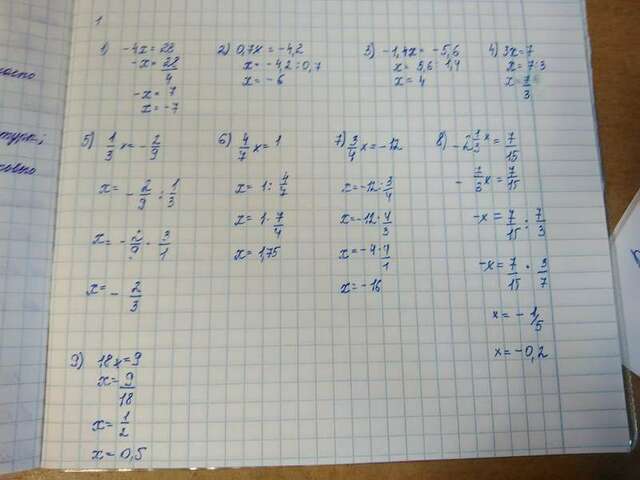 1
1) -4x = 28
-x = 28/4
-x = 7
x = -7
2) 0,7x = -4,2
x = -4,2 : 0,7
x = -6
3) -1,4x = -5,6
x = 5,6 : 1,4
x = 4
4) 3x = 7
x = 7 : 3
x = 7/3
5) 1/3 x = - 2/9
x = - 2/9 : 1/3
x = - 2/9 · 3/1
x = - 2/3
6) 4/7 x = 1
x = 1 : 4/7
x = 1 · 7/4
x = 1,75
7) 3/4 x = -12
x = -12 : 3/4
x = -12 · 4/3
x = -4 · 4/1
x = -16
8) -2 1/3 x = 7/15
- 7/3 x = 7/15
-x = 7/15 : 7/3
-x = 7/15 · 3/7
x = - 1/5
x = -0,2
9) 18x = 9
x = 9/18
x = 1/2
x = 0,5